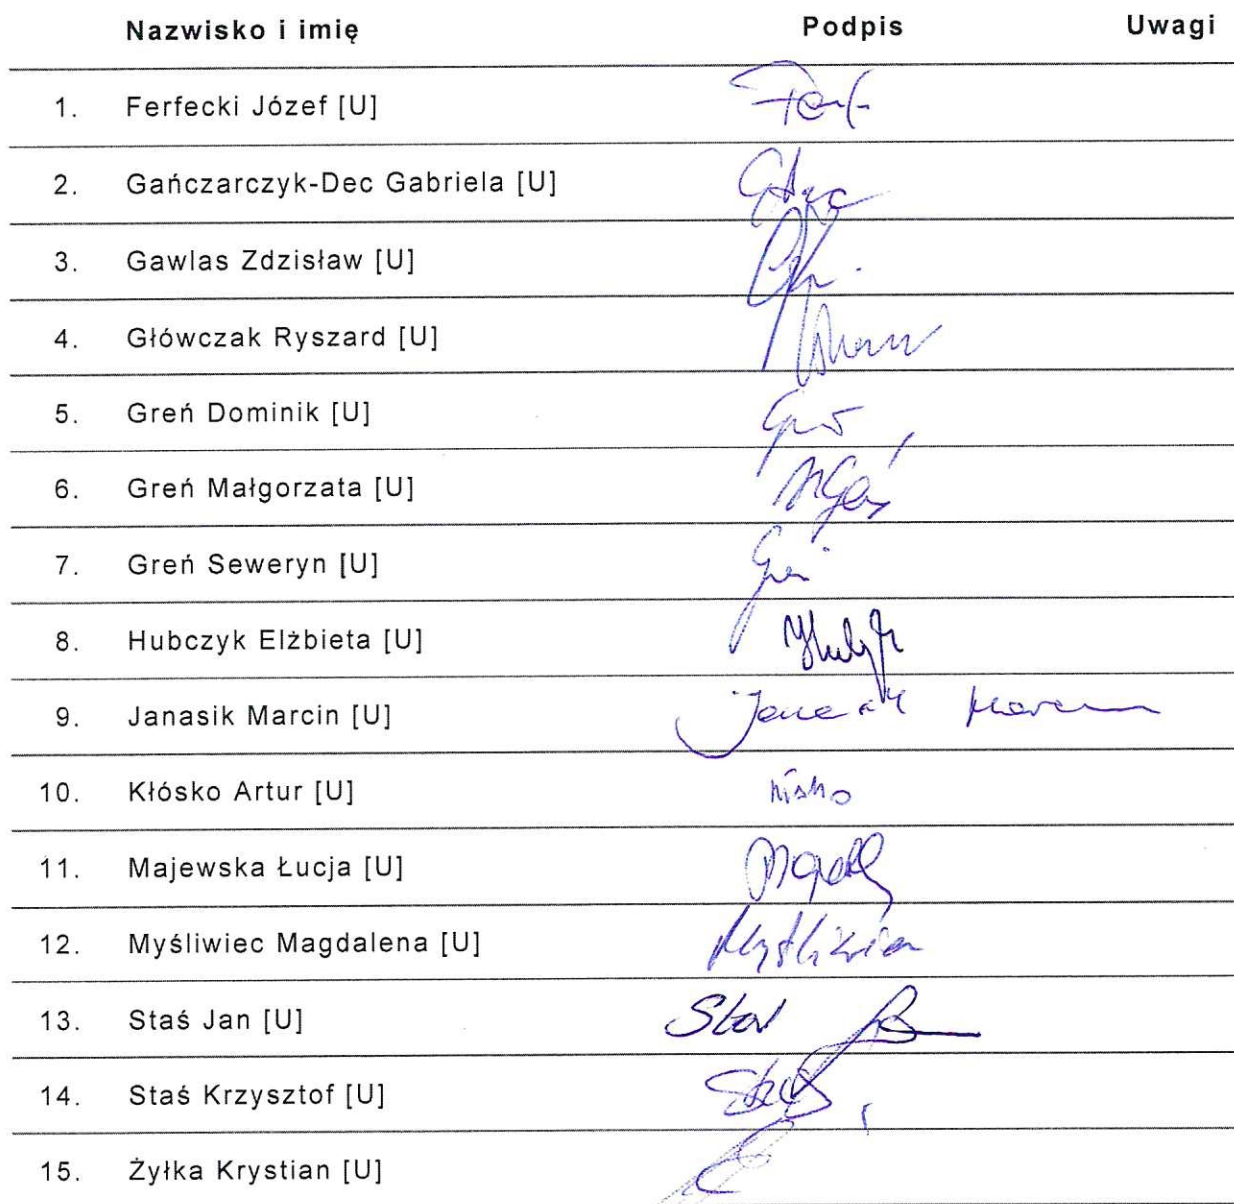 Nazwisko i imię Podpis Uwagi
1. Ferfecki Józef [U]
2. Gańczarczyk-Dec Gabriela [U]
3. Gawlas Zdzisław [U]
4. Główczak Ryszard [U]
5. Greń Dominik [U]
6. Greń Małgorzata [U]
7. Greń Seweryn [U]
8. Hubczyk Elżbieta [U]
9. Janasik Marcin [U]
10. Kłósko Artur [U]
11. Majewska Łucja [U]
12. Myśliwiec Magdalena [U]
13. Staś Jan [U]
14. Staś Krzysztof [U]
15. Żyłka Krystian [U]